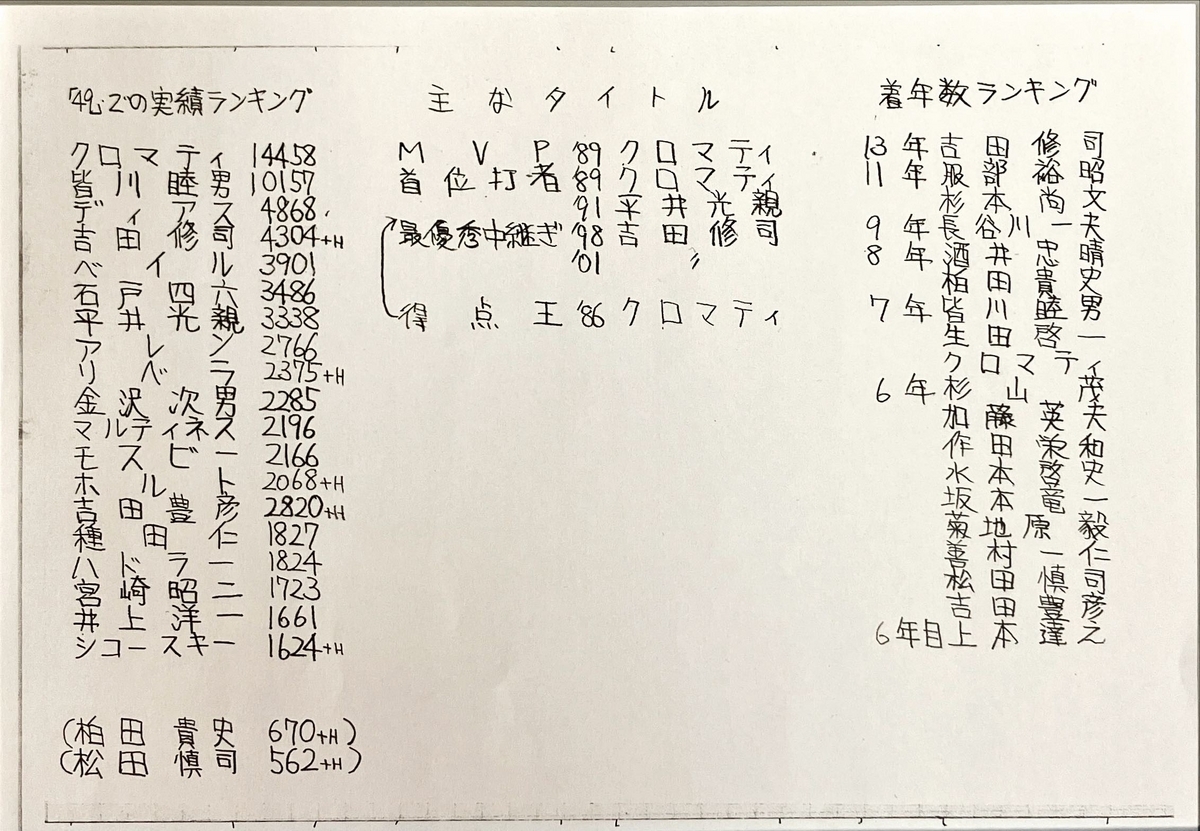 「49」での実績ランキング
クロマティ 14458
皆川睦男 10157
ディアス 4868
吉田修司 4304+H
ベイル 3901
石戸四六 3486
平井光親 3338
アレン 2766
リベラ 2375+H
金沢次男 2285
マルティネス 2196
モスビー 2166
ホルト 2068+H
吉田豊彦 2820+H
種田仁 1827
ハドラー 1824
宮崎昭二 1723
井上洋一 1661
シコースキー 1624+H
(柏田貴史 670+H)
(松田慎司 562+H)
主なタイトル
MVP '89 クロマティ
首位打者 '89 クロマティ
'91 平井光親
最優秀中継ぎ '98 吉田修司
'01 〃
得点王 '86 クロマティ
着年数ランキング
13年 吉田修司
11年 服部裕昭
杉本尚文
9年 長谷川一夫
8年 酒井忠晴
柏田貴史
7年 皆川睦男
生田啓一
クロマティ
6年 杉山茂
加藤英夫
作田栄和
水本啓史
坂本竜一
菊地原毅
善村一仁
松田慎司
吉田豊彦
6年目 上本達之